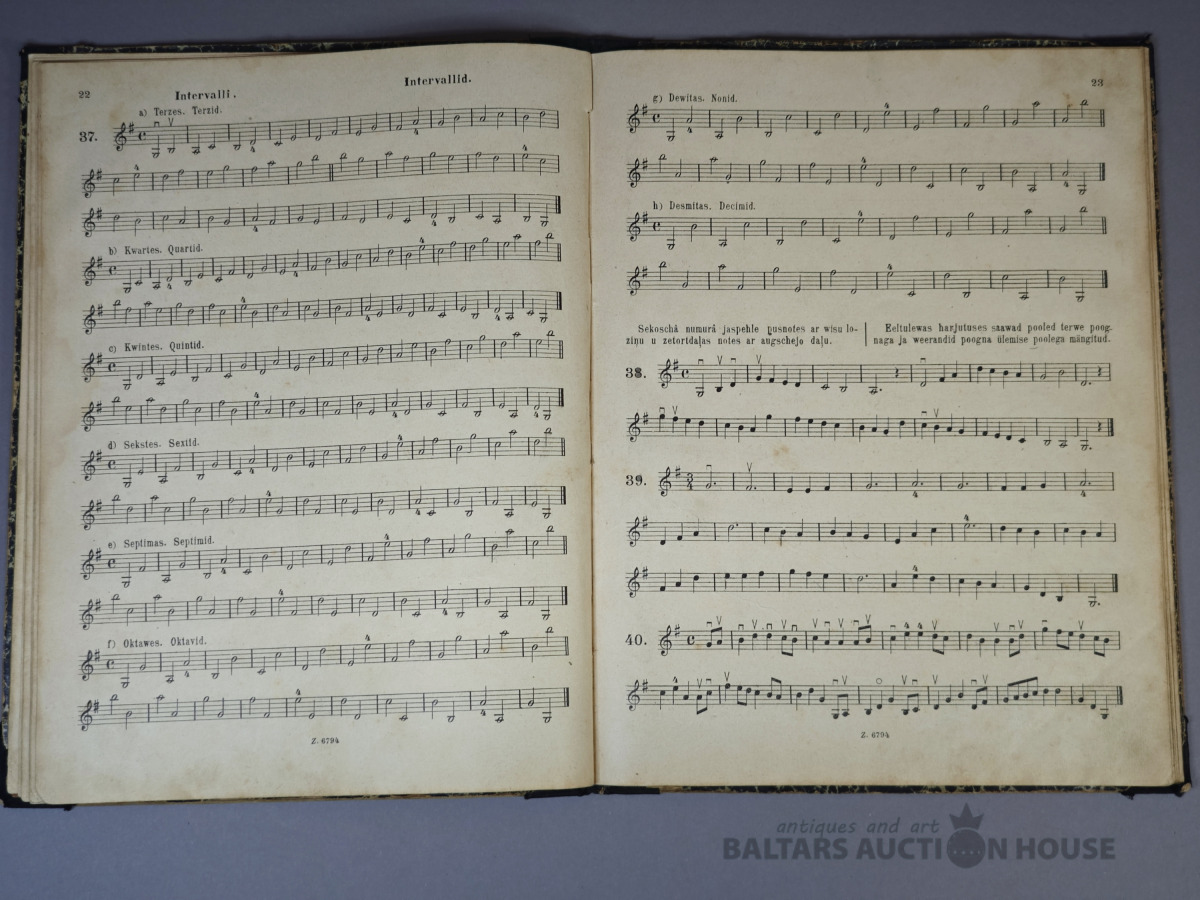 22
Intervalli.
Intervallid.
a) Terzes. Terzid.
37.
b) Kwartes. Quartid.
c) Kwintes. Quintid.
d) Sekstes. Sextid.
e) Septimas. Septimid.
f) Oktawes. Oktavid.
Z. 6794
23
g) Dewitas. Nonid.
h) Desmitas. Decimid.
Sekoschâ numurâ jaspehle pusnotes ar wisu lo-
ziņu u zetortdaļas notes ar augschejo daļu.
Eeltulewas harjutuses saawad pooled terwe poog-
naga ja weerandid poogna ülemise poolega mängitud.
38.
39.
40.
Z. 6794
antiques and art
BALTARS AUCTION HOUSE